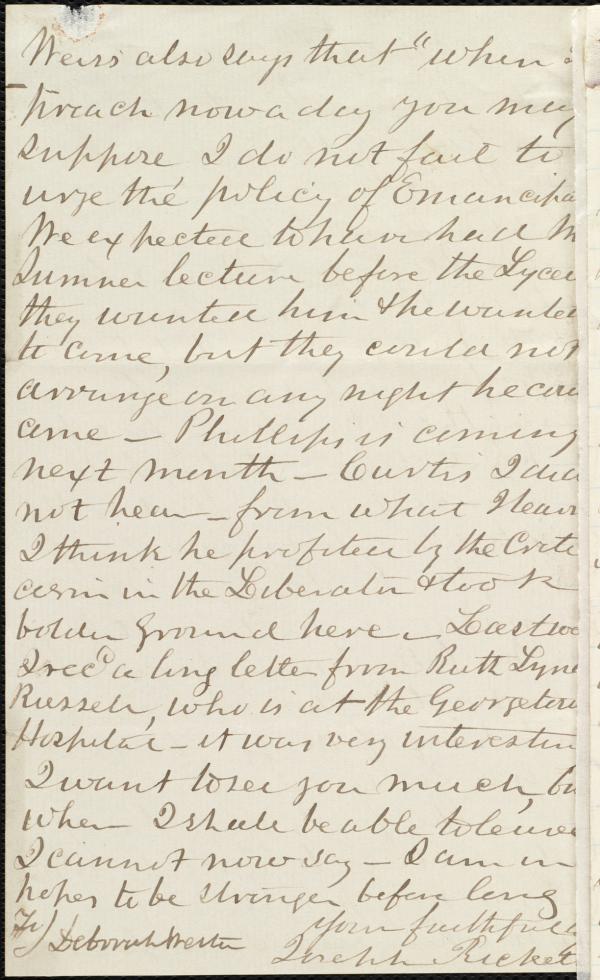 Weiss also says that "when I
preach now a day you may
suppose I do not fail to
urge the policy of Emancipa
We expected to have had M
Sumner lecture before the Lyceu
they wanted him & he wanted
to come, but they could not
arrange on any night he cou
come — Phillips is coming
next month — Curtis I did
not hear — from what I learn
I think he profited by the Criti
cism in the Liberator & took
bolder ground here — Last we
I recd a long letter from Ruth Lyne
Russell, who is at the Georgetow
Hospital — it was very interestin
I want to see you much, bu
when I shall be able to leave
I cannot now say — I am in
hopes to be stronger before long
Yours faithfull
Deborah Weston
Joseph Ricket